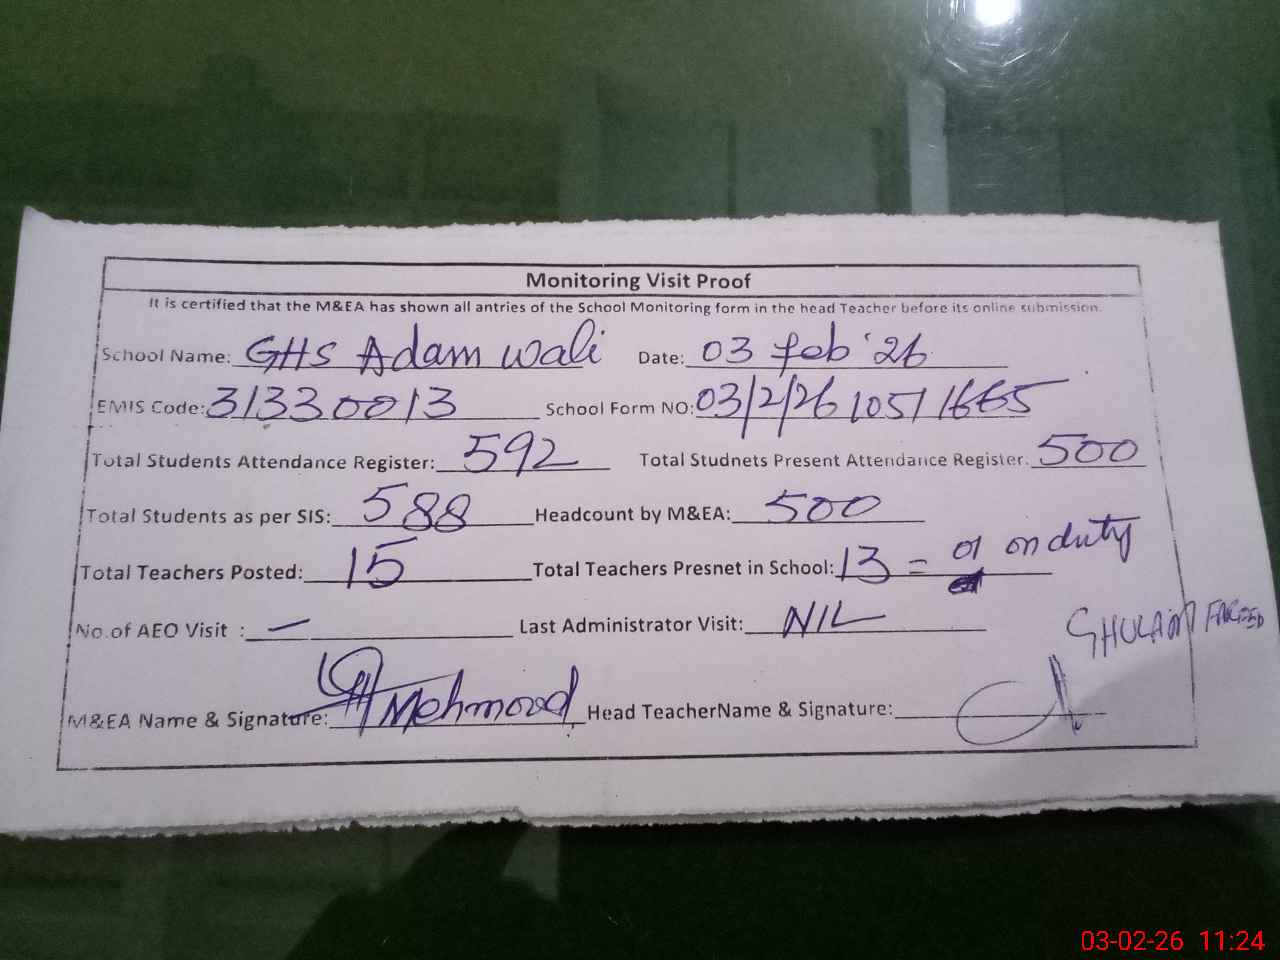 Monitoring Visit Proof
It is certified that the M&EA has shown all antries of the School Monitoring form in the head Teacher before its online submission.
School Name: GHS Adam wali Date: 03 feb '26
EMIS Code: 31330013 School Form NO: 03/2/26 10511665
Total Students Attendance Register: 592 Total Studnets Present Attendance Register. 500
Total Students as per SIS: 588 Headcount by M&EA: 500
Total Teachers Posted: 15 Total Teachers Presnet in School: 13 = 01 on duty
No.of AEO Visit : — Last Administrator Visit: NIL
GHULAM FAREED
M&EA Name & Signature: Mehmood Head TeacherName & Signature:
03-02-26 11:24